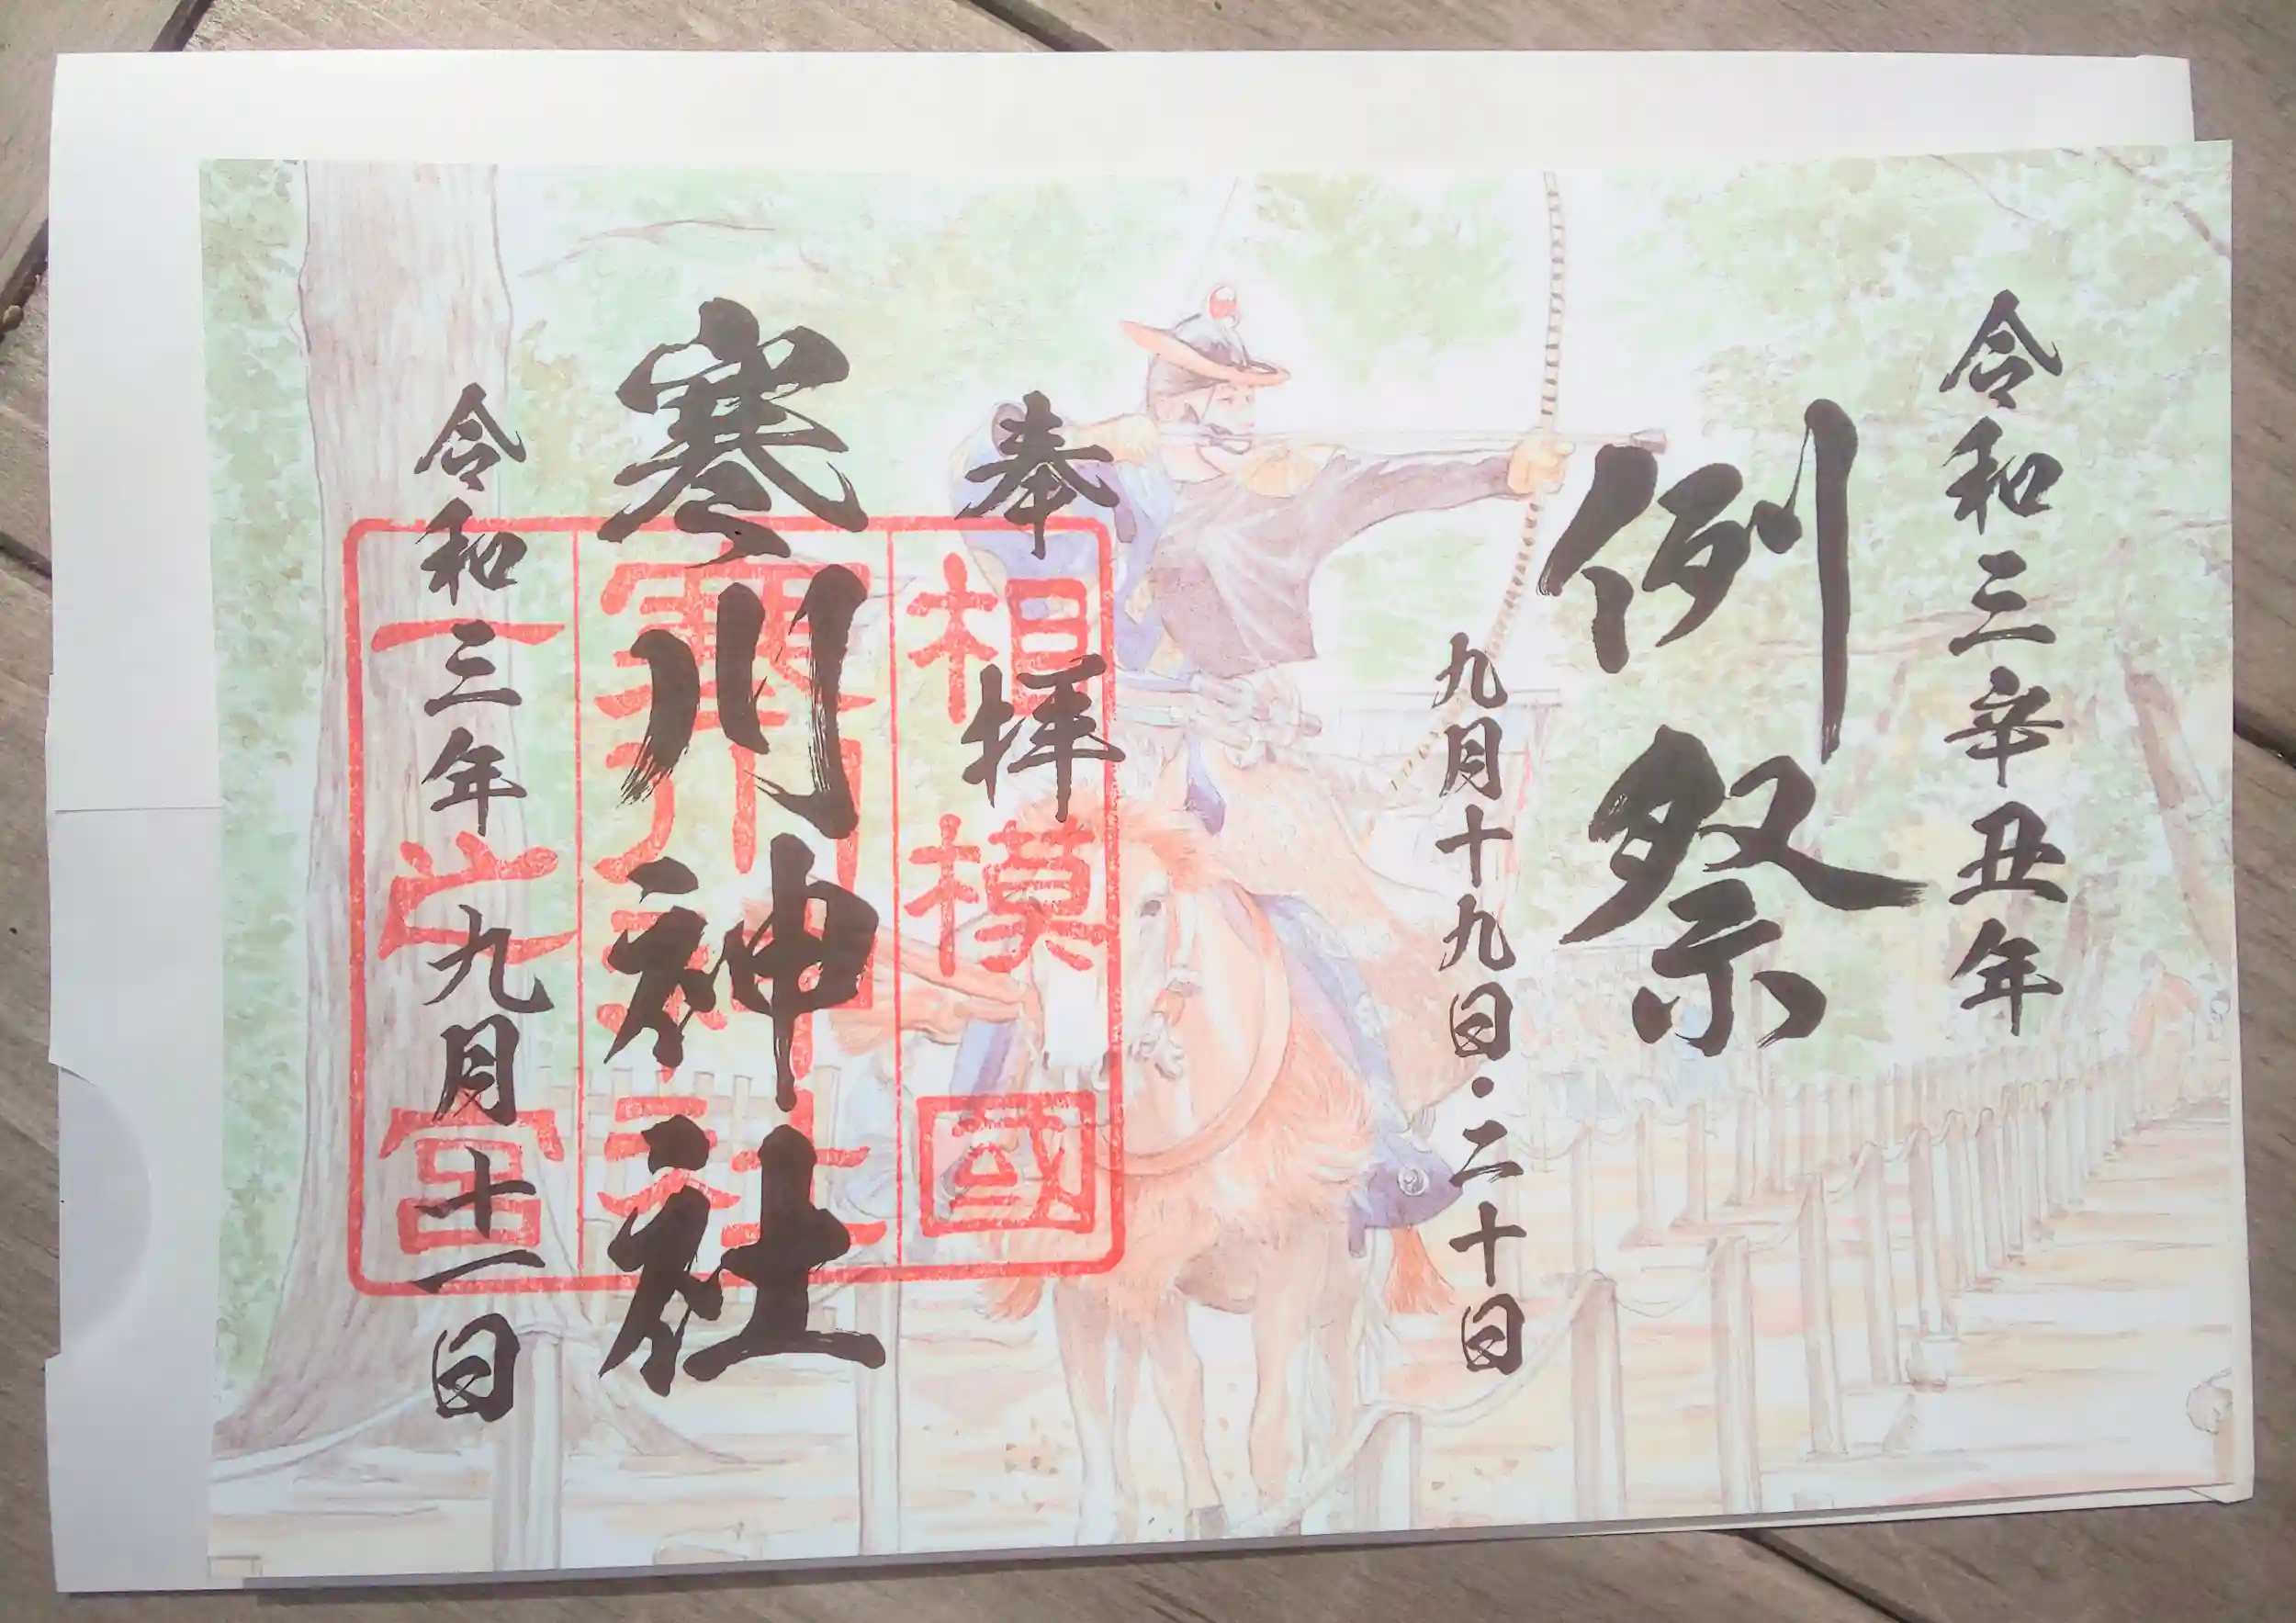 令和三辛丑年
例祭
九月十九日・二十日
奉拝
寒川神社
令和三年九月十一日
相模國
寒川神社
一之宮